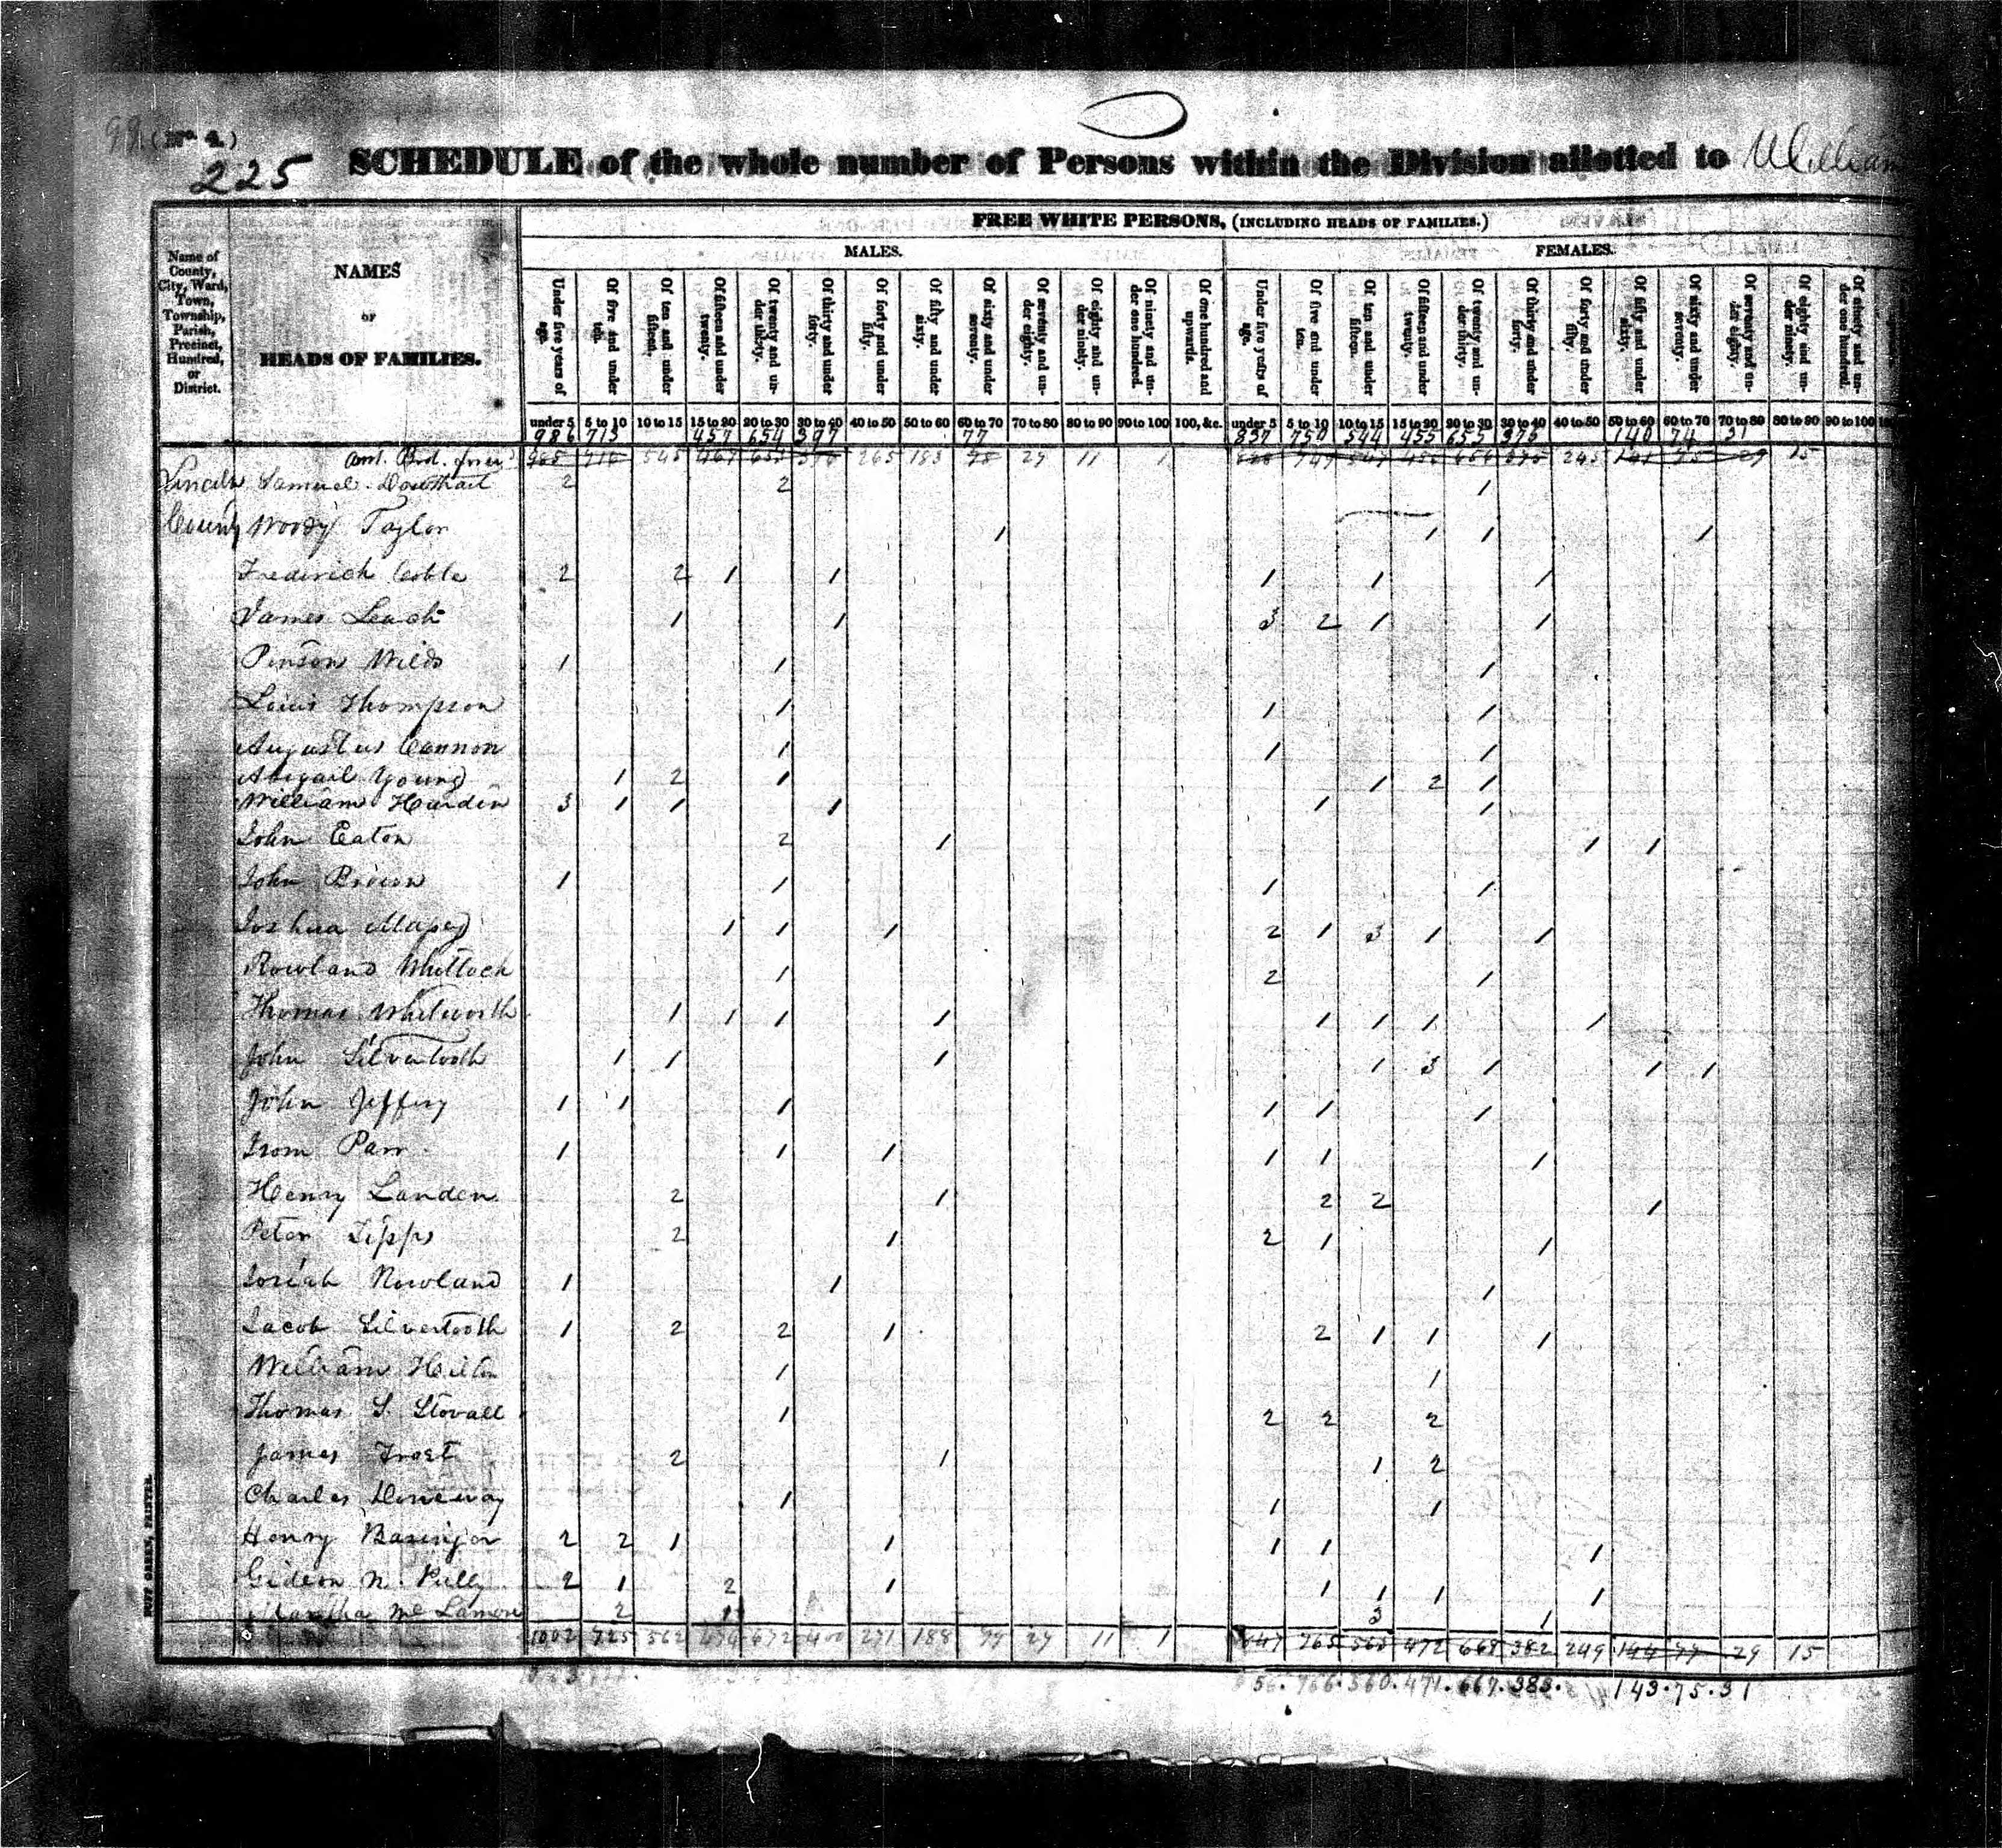 (No. 4.)
225 SCHEDULE of the whole number of Persons within the Division allotted to William
FREE WHITE PERSONS, (INCLUDING HEADS OF FAMILIES.)
MALES. FEMALES.
Name of County, City, Ward, Town, Township, Parish, Precinct, Hundred, or District.
NAMES
OF
HEADS OF FAMILIES.
Under five years of age. Of five and under ten. Of ten and under fifteen. Of fifteen and under twenty. Of twenty and under thirty. Of thirty and under forty. Of forty and under fifty. Of fifty and under sixty. Of sixty and under seventy. Of seventy and under eighty. Of eighty and under ninety. Of ninety and under one hundred. Of one hundred and upwards. Under five years of age. Of five and under ten. Of ten and under fifteen. Of fifteen and under twenty. Of twenty and under thirty. Of thirty and under forty. Of forty and under fifty. Of fifty and under sixty. Of sixty and under seventy. Of seventy and under eighty. Of eighty and under ninety. Of ninety and under one hundred.
under 5 5 to 10 10 to 15 15 to 20 20 to 30 30 to 40 40 to 50 50 to 60 60 to 70 70 to 80 80 to 90 90 to 100 100, &c. under 5 5 to 10 10 to 15 15 to 20 20 to 30 30 to 40 40 to 50 50 to 60 60 to 70 70 to 80 80 to 90 90 to 100
986 713 457 654 397 77 837 750 544 455 655 376 140 74 31
545 265 183 29 11 1 747 245 29 15
Lincoln Samuel 2 2 1
County Woody Taylor 1 1 1 1
Frederick Coble 2 2 1 1 1 1 1
James Leach 1 1 3 2 1 1
Pinson Wilds 1 1 1
Louis Thompson 1 1 1
Augustus Cannon 1 1 1
Abigail Young 1 2 1 1 2 1
William Hardin 3 1 1 1 1 1
John Eaton 2 1 1 1
John Brown 1 1 1 1
Joshua Mapes 1 1 1 2 1 3 1 1
Rowland Whitlock 1 2 1
Thomas Whitworth 1 1 1 1 1 1 1 1
John Silvertooth 1 1 1 1 3 1 1 1
John Jeffery 1 1 1 1 1 1
Isom Parr 1 1 1 1 1 1
Henry Landen 2 1 2 2 1
Peter Tipps 2 1 2 1 1
Josiah Rowland 1 1 1
Jacob Silvertooth 1 2 2 1 2 1 1 1
William Hilton 1 1
Thomas S. Stovall 1 2 2 2
James Frost 2 1 1 2
Charles 1 1 1
Henry Basinger 2 2 1 1 1 1 1
Gideon N. Pully 2 1 2 1 1 1 1 1
Martha McLamore 2 1 3 1
1002 725 562 474 672 400 271 188 79 29 11 1 847 765 565 472 668 382 249 144 77 29 15
56. 766. 560. 471. 667. 383. 143. 75. 31
DUFF GREEN, PRINTER.